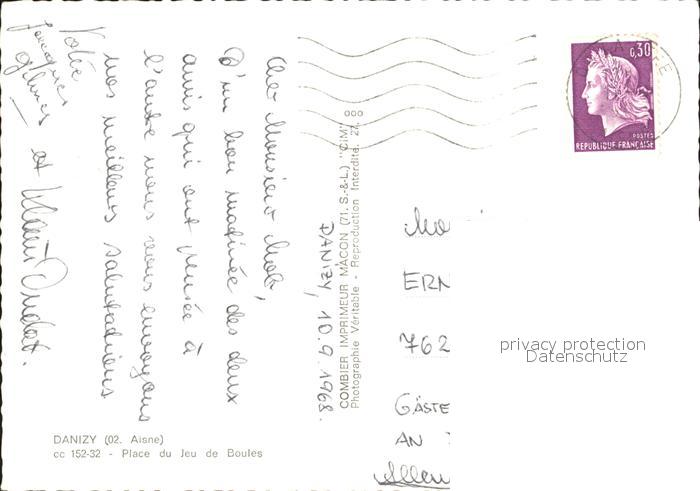 Cher Monsieur Mob,
D'un bon matinée des deux
amis qui ont pensée à
l'autre nous vous envoyons
nos meilleurs salutations
Votre
et
DANIZY, 10.9.1968.
COMBIER IMPRIMEUR MÂCON (71. S.-&-L.) "CIM"
Photographie Véritable - Reproduction Interdite. 27.
0,30
POSTES
REPUBLIQUE FRANÇAISE
ERN
762
GÄSTE
AN
Allem
privacy protection
Datenschutz
DANIZY (02. Aisne)
cc 152-32 - Place du Jeu de Boules